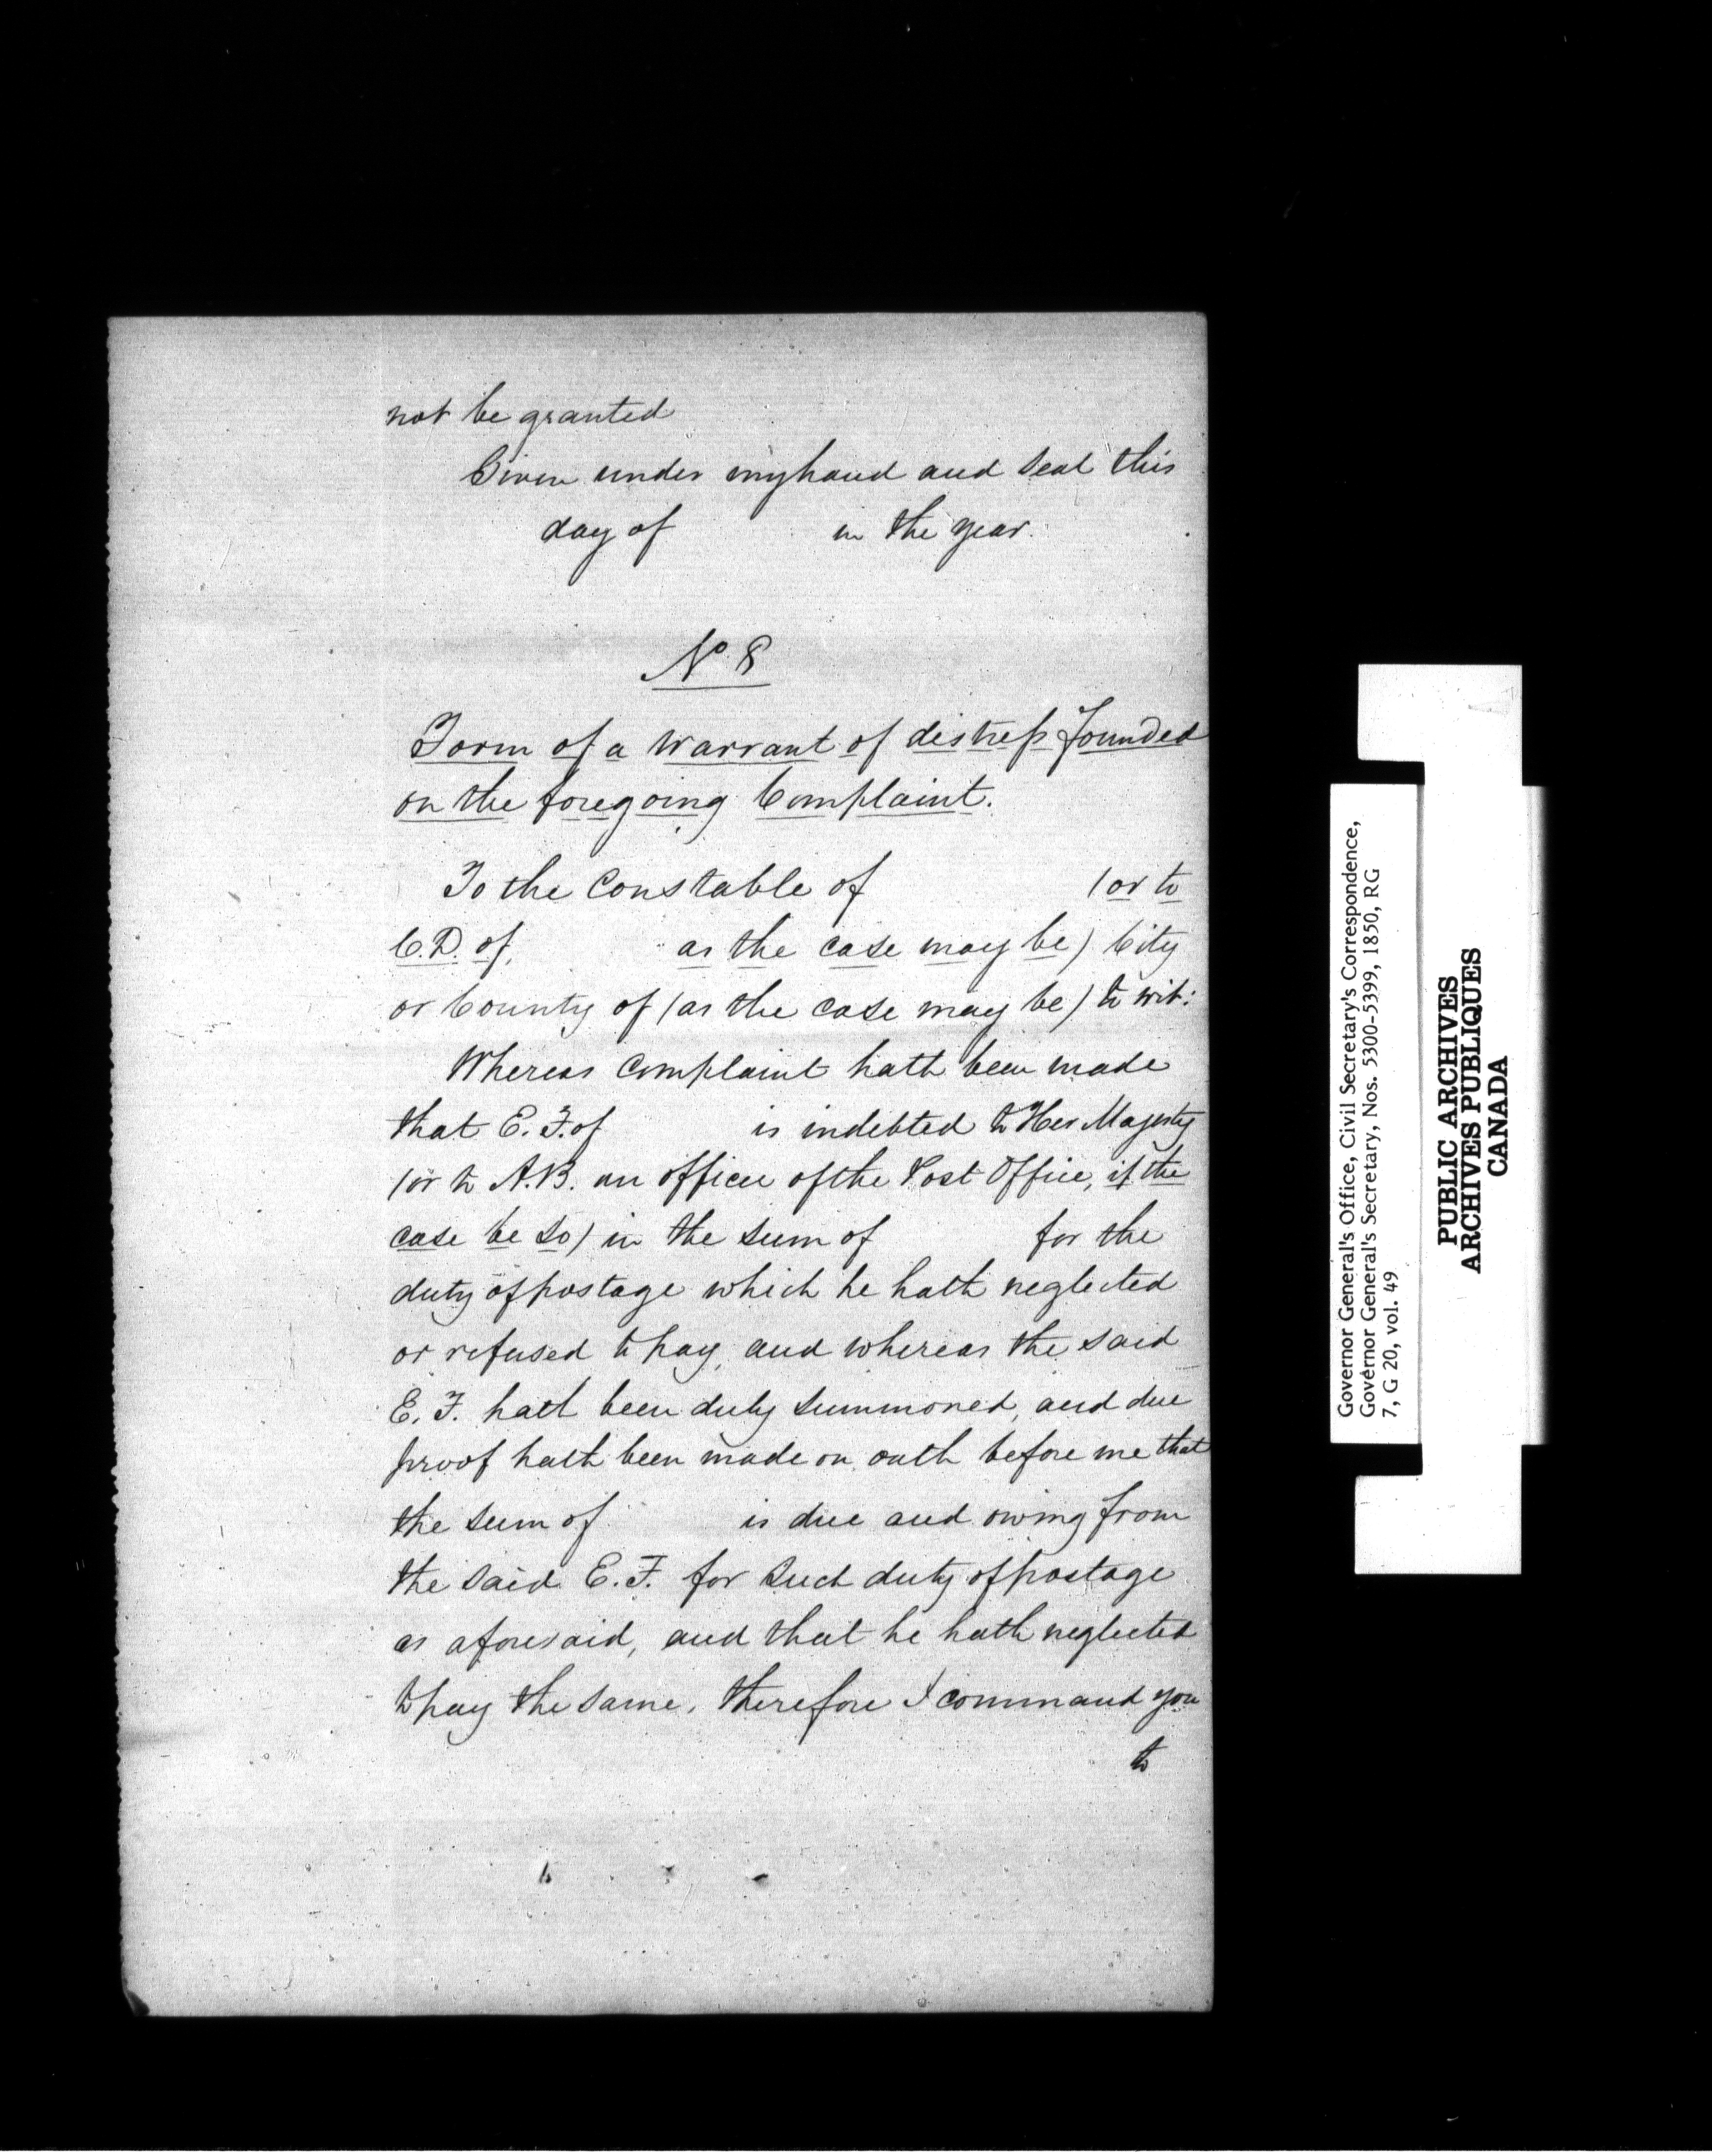 not be granted
Given under my hand and seal this
day of in the year.
No. 8
Form of a Warrant of distress founded
on the foregoing Complaint.
To the Constable of (or to
C.D. of, as the case may be) City
or County of (as the case may be) to wit:
Whereas Complaint hath been made
that E. F. of is indebted to Her Majesty
(or to A.B. an officer of the Post Office, if the
case be so) in the sum of for the
duty of postage which he hath neglected
or refused to pay, and whereas the said
E. F. hath been duly summoned, and due
proof hath been made on oath before me that
the sum of is due and owing from
the said E. F. for such duty of postage
as aforesaid, and that he hath neglected
to pay the same, therefore I command you
to
Governor General's Office, Civil Secretary's Correspondence,
Governor General's Secretary, Nos. 5300-5399, 1850, RG
7, G 20, vol. 49
PUBLIC ARCHIVES
ARCHIVES PUBLIQUES
CANADA